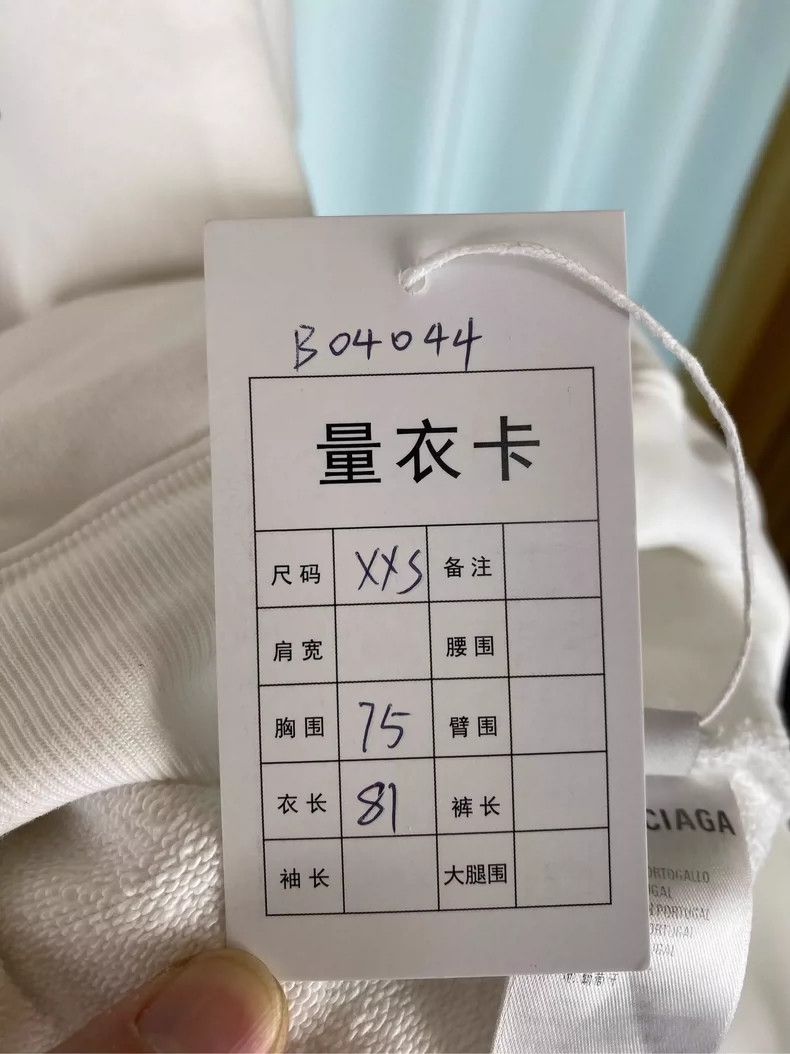 B04044
量衣卡
尺码 XXS 备注
肩宽 腰围
胸围 75 臂围
衣长 81 裤长
袖长 大腿围
CIAGA
PORTUGAL